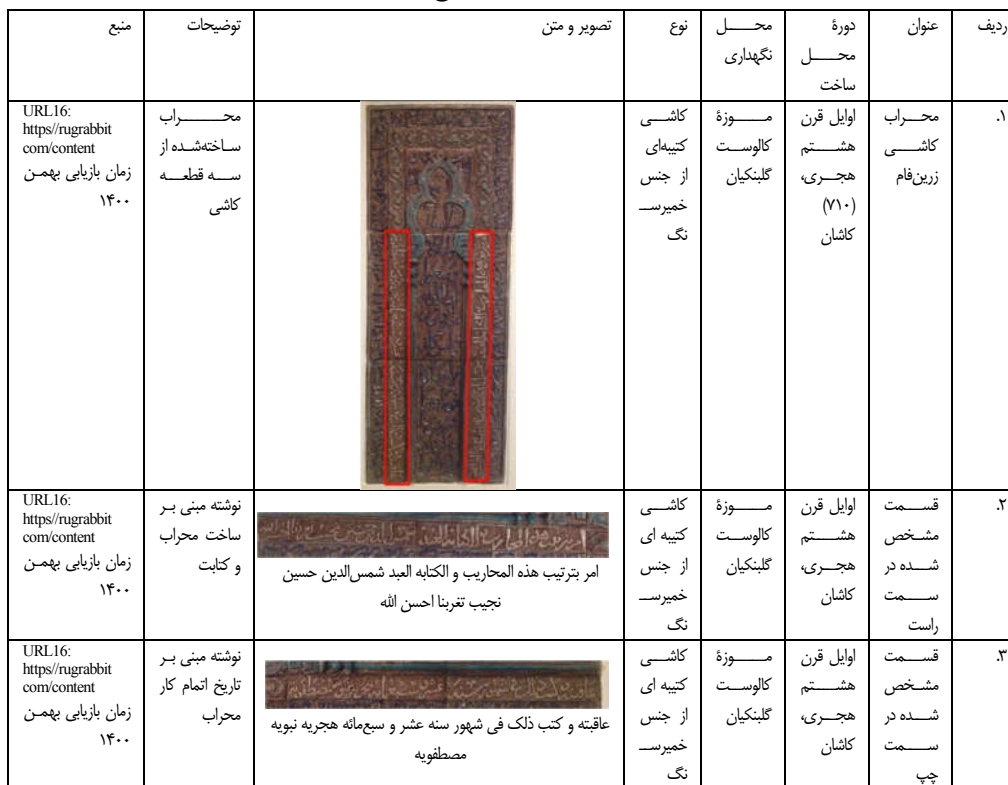 ردیف
عنوان
دورهٔ
محل
ساخت
محل
نگهداری
نوع
تصویر و متن
توضیحات
منبع
۱.
محراب
کاشی
زرین‌فام
اوایل قرن
هشتم
هجری،
(۷۱۰)
کاشان
موزهٔ
کالوست
گلبنکیان
کاشی
کتیبه‌ای
از جنس
خمیرسـ
نگ
محراب
ساخته‌شده از
سه قطعه
کاشی
URL16:
https//rugrabbit
com/content
زمان بازیابی بهمن
۱۴۰۰
۲.
قسمت
مشخص
شده در
سمت
راست
اوایل قرن
هشتم
هجری،
کاشان
موزهٔ
کالوست
گلبنکیان
کاشی
کتیبه ای
از جنس
خمیرسـ
نگ
امر بترتیب هذه المحاریب و الکتابه العبد شمس‌الدین حسین
نجیب تغربنا احسن الله
نوشته مبنی بر
ساخت محراب
و کتابت
URL16:
https//rugrabbit
com/content
زمان بازیابی بهمن
۱۴۰۰
۳.
قسمت
مشخص
شده در
سمت
چپ
اوایل قرن
هشتم
هجری،
کاشان
موزهٔ
کالوست
گلبنکیان
کاشی
کتیبه ای
از جنس
خمیرسـ
نگ
عاقبته و کتب ذلک فی شهور سنه عشر و سبع‌مائه هجریه نبویه
مصطفویه
نوشته مبنی بر
تاریخ اتمام کار
محراب
URL16:
https//rugrabbit
com/content
زمان بازیابی بهمن
۱۴۰۰